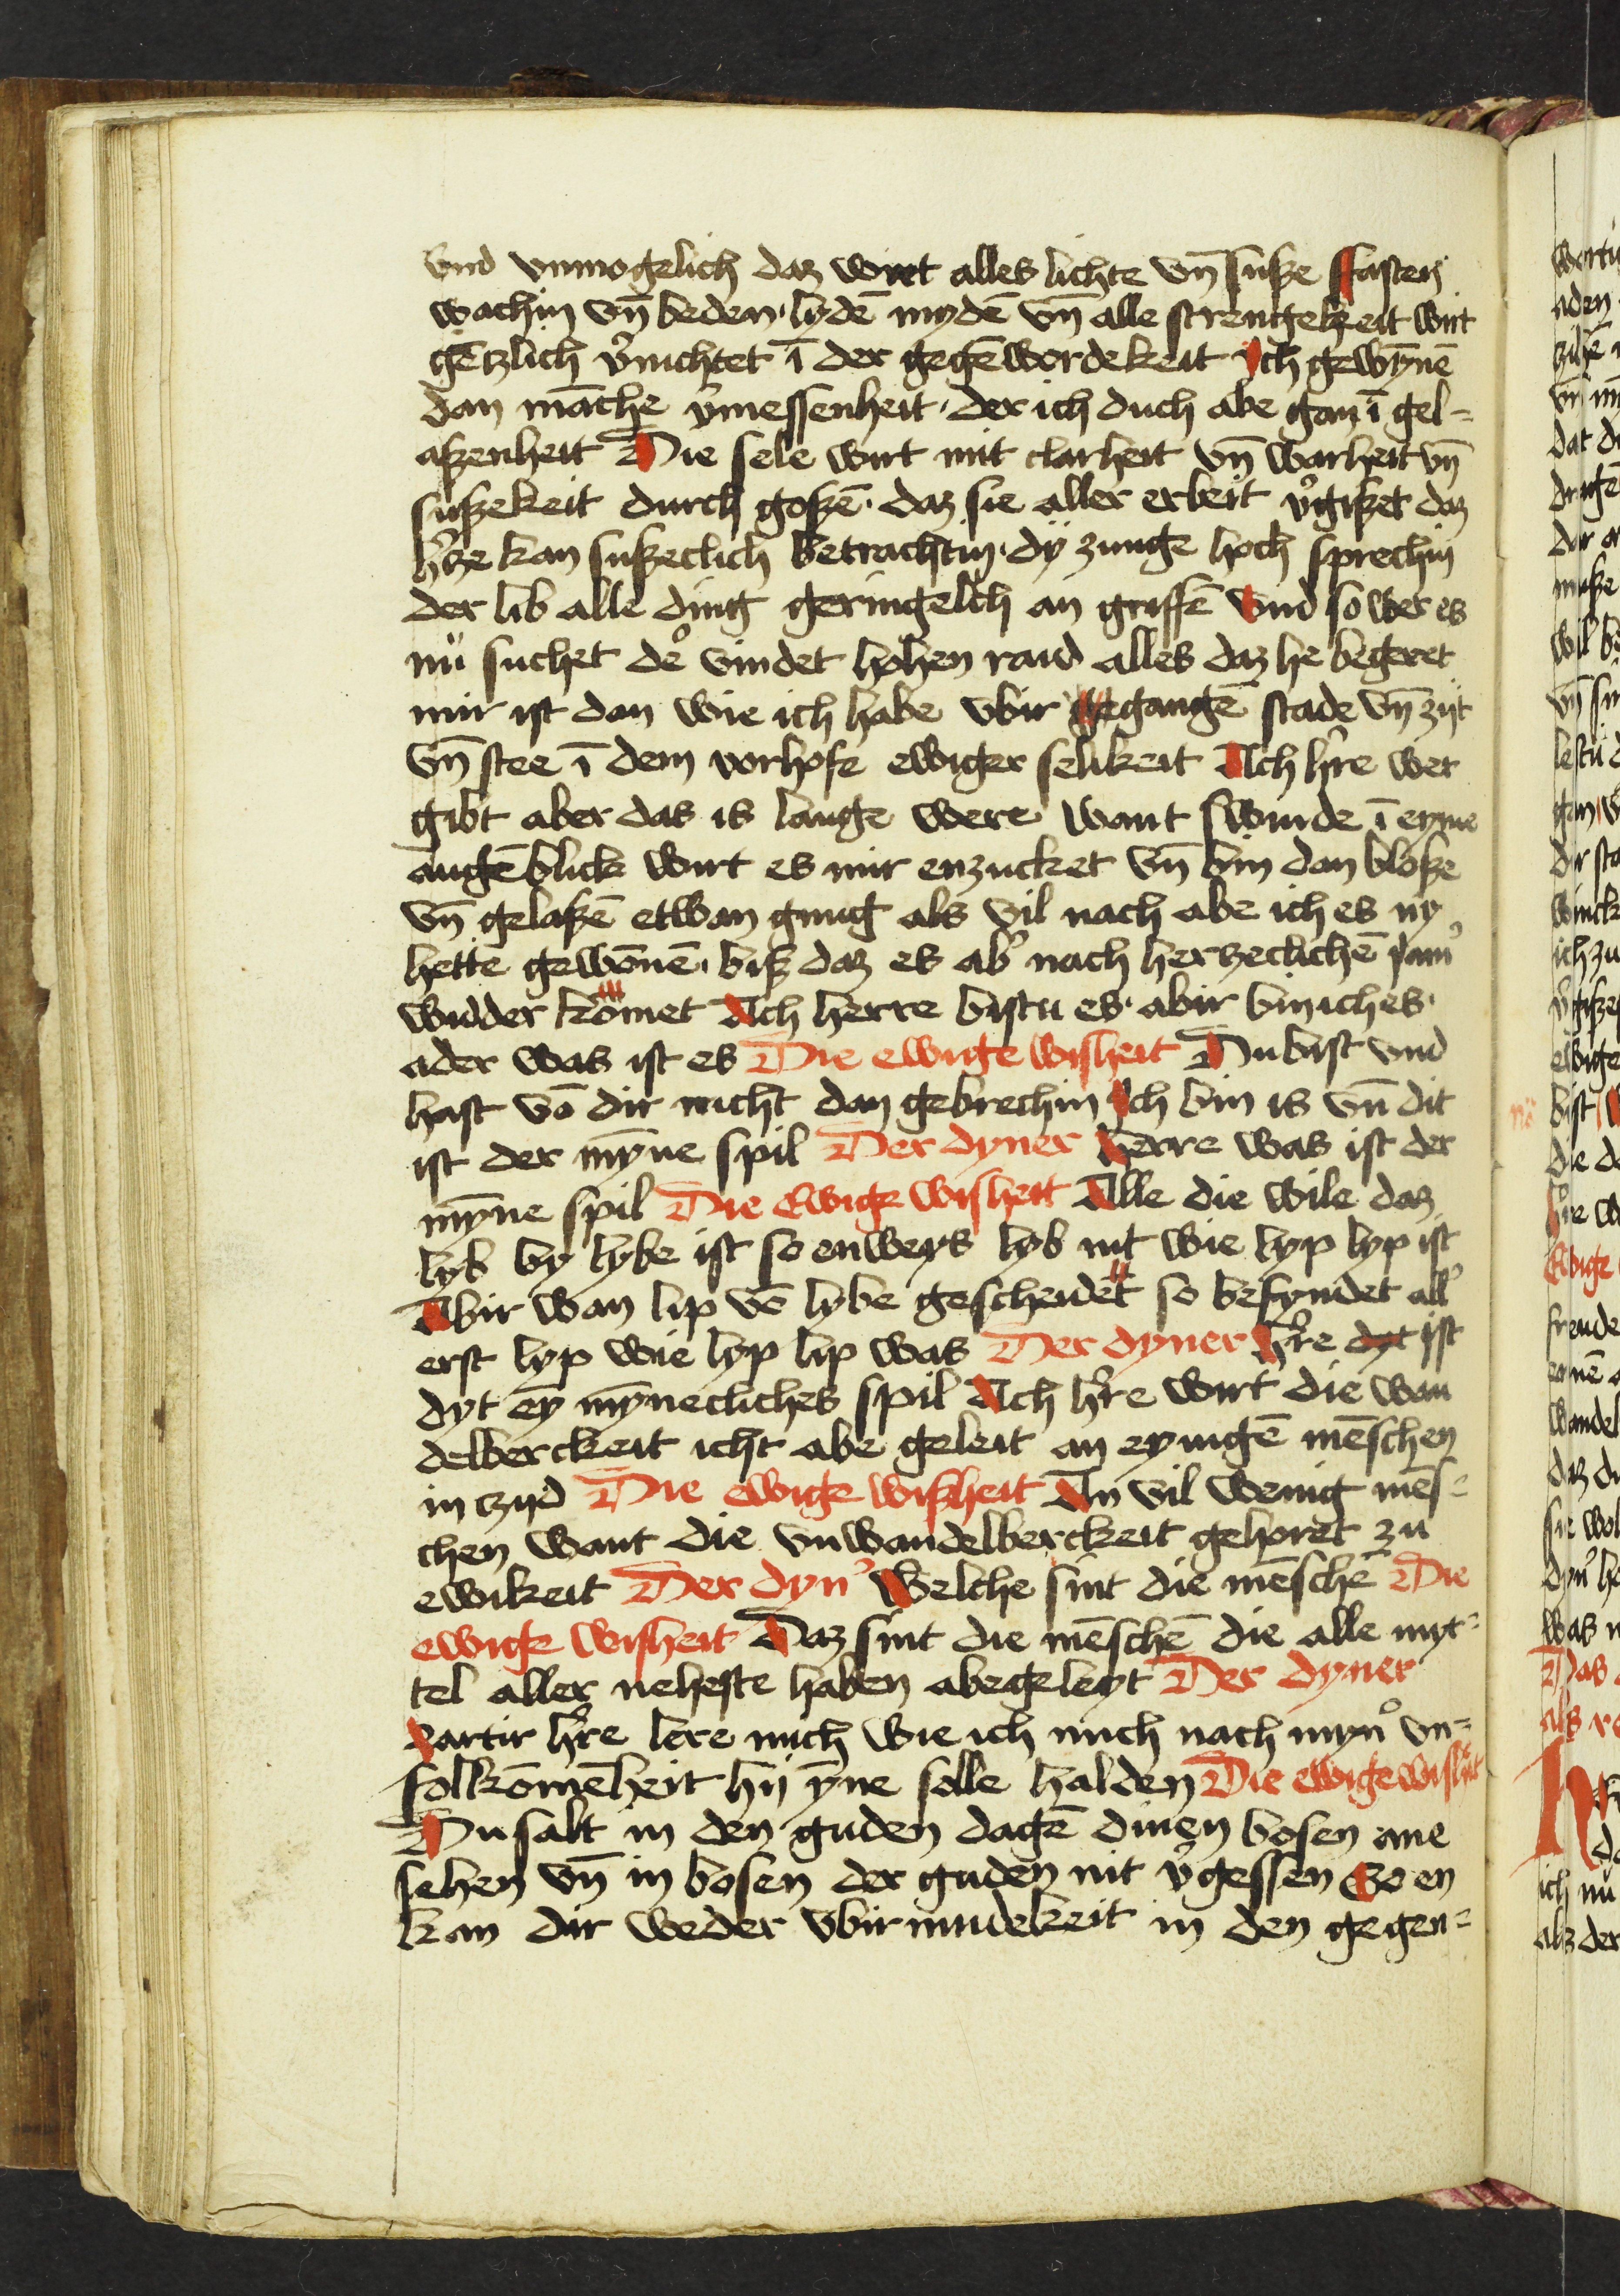 vnd vnmogelich daz wirt alles lichte vn̄ susze ffasten
wachin vn̄ beden · lydē mydē vn̄ alle strengekeit wirt
gētzlich v᷑nichtet ī der gegēwordekeit Ich gewȳnē
dan māche v᷑messenheit · der ich duch abe gan ī gel-
aszenheit Die sele wirt mit clarheit vn̄ warheit vn̄
suszekeit durch goszē · daz sie aller erbeit v᷑giszet daz
h᷑tze kan suszeclich betrachtin · dÿ zunge hoch sprechin
der lib alle ding geringelich an griffē vnd so wer es
nů suchet de᷑ vindet hohen raid alles daz he begeret
mir ist dan wie ich habe vbir gegangē stade vn̄ zijt
vn̄ stee ī dem vorhofe ewiger selikeit Ach h᷑re wer
gibt aber das is lange were want swinde ī eyme
augēblick wirt es mir enzucket vn̄ bin dan blosze
vn̄ gelaszē etwan gnug als vil nach abe ich es ny
hette gewōnē · bisz daz es ab᷑ nach hertzeclichē iam᷑
widder kōmet Ach herre bistu es · abir bin ich es ·
ader was ist es Die ewige wisheit Du bist vnd
hast vō dir nicht dan gebrechin Ich bin is vn̄ dit
ist der mȳne spil Der dyner herre was ist der
mȳne spil Die Ewige wisheit Alle die wile daz
lyb by lybe ist so enweys lyb nit wie lyp lyp ist
Abir wan lip vō lybe gescheidet so befyndet all᷑
erst lyp wie lyp lip was Der dyner h᷑re dyt ist
dyt eȳ mȳnecliches spil Ach h᷑re wirt die wan
delberckeit icht abe geleit an eynigē mēschen
in czijd Die ewige wiszheit An vil wenig mēs-
chen want die vnwandelberckeit gehoret zu
ewikeit Der dyn᷑ Welche sint die mēschē Die
ewige wisheit Daz sint die mēschē die alle myt-
tel aller neheste haben abegeleyt Der dyner
zartir h᷑re lere mich wie ich mich nach myn᷑ vn-
folkōmēheit hij ȳne solle halden Die ewige wisheit
Du salt in den guden dagē dinen bosen ane
sehen vn̄ in bosen der guden nit v᷑gessen So en
kan dir weder vbirmudekeit in den gegen-